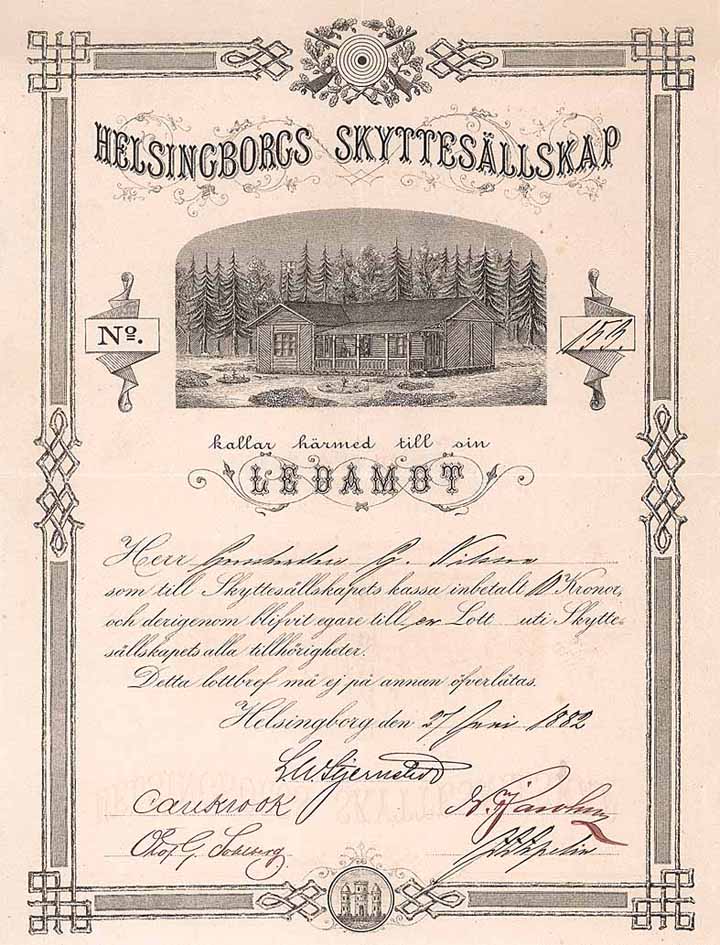 HELSINGBORGS SKYTTESÄLLSKAP
No. 153
kallar härmed till sin
LEDAMOT
Herr G. Nilsson
som till Skyttesällskapets kassa inbetalt 10 Kronor,
och derigenom blifvit egare till en Lott uti Skytte-
sällskapets alla tillhörigheter.
Detta lottbref må ej på annan öfverlåtas.
Helsingborg den 27 Juni 1882
Carl Krook